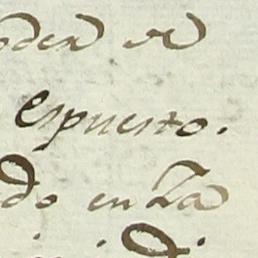 oder de
espuesto.
do en La